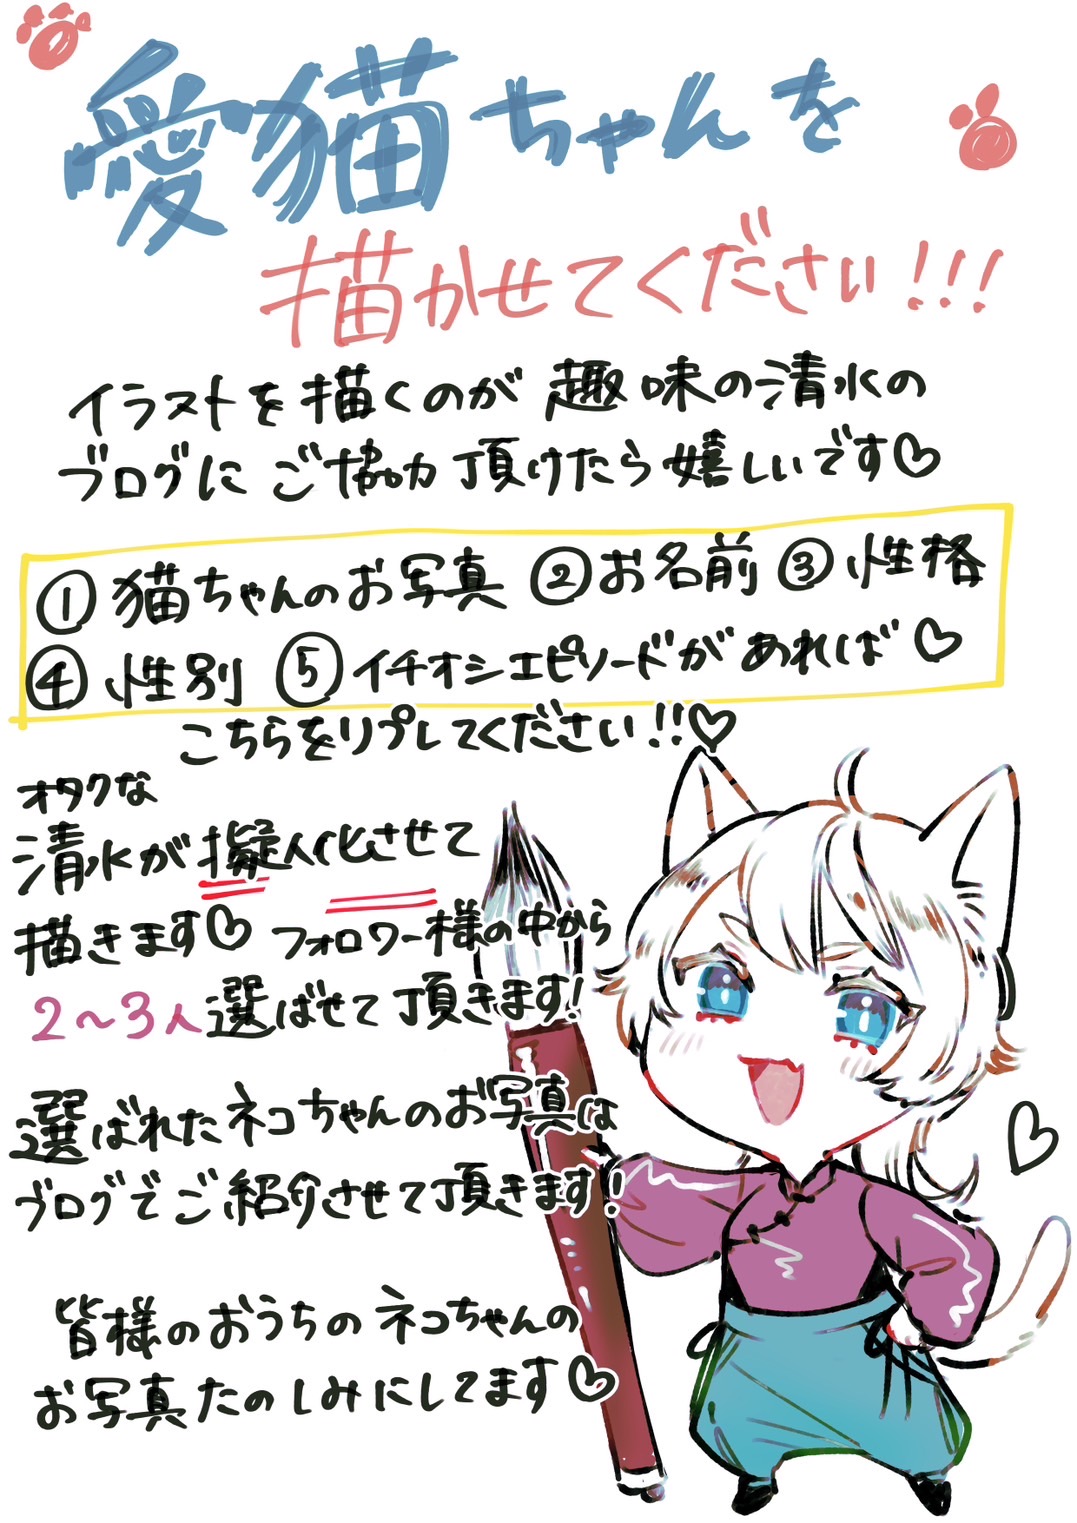 愛猫ちゃんを
描かせてください!!!
イラストを描くのが趣味の清水の
ブログにご協力頂けたら嬉しいです♡
①猫ちゃんのお写真 ②お名前 ③性格
④性別 ⑤イチオシエピソードがあれば♡
こちらをリプしてください!!♡
オタクな
清水が擬人化させて
描きます♡ フォロワー様の中から
2~3人選ばせて頂きます!
選ばれたネコちゃんのお写真は
ブログでご紹介させて頂きます!
皆様のおうちのネコちゃんの
お写真たのしみにしてます♡